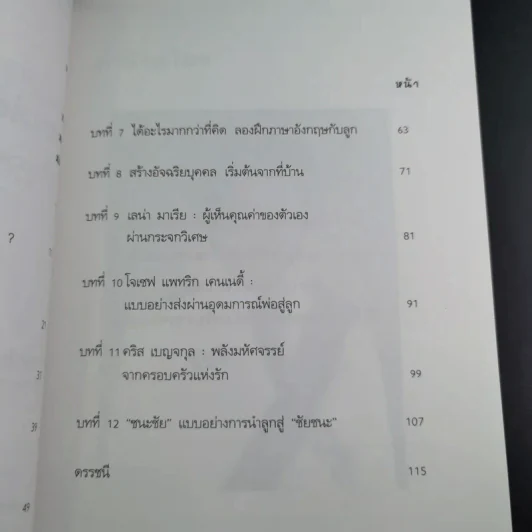 หน้า
บทที่ 7 ได้อะไรมากกว่าที่คิด ลองฝึกภาษาอังกฤษกับลูก 63
บทที่ 8 สร้างอัจฉริยบุคคล เริ่มต้นจากที่บ้าน 71
บทที่ 9 เลน่า มาเรีย : ผู้เห็นคุณค่าของตัวเอง
ผ่านกระจกวิเศษ 81
บทที่ 10 โจเซฟ แพทริก เคนเนดี้ :
แบบอย่างส่งผ่านอุดมการณ์พ่อสู่ลูก 91
บทที่ 11 คริส เบญจกุล : พลังมหัศจรรย์
จากครอบครัวแห่งรัก 99
บทที่ 12 "ชนะชัย" แบบอย่างการนำลูกสู่ "ชัยชนะ" 107
ดรรชนี 115
?
39
49